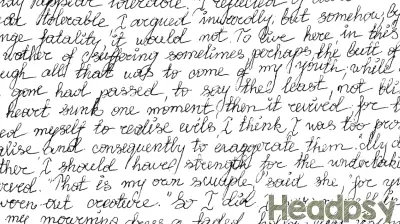 may appear tolerable, I reflected; of course
at tolerable I argued inwardly, but somehow, by
nge fatality, it would not. To live here in this
wother of suffering sometimes, perhaps the butt of
ough all that was to come of my youth, while
gone had passed, to say the least, not bli
heart sunk one moment, then it revived, for t
ed myself to realise evils, I think I was too pro
alise, and consequently to exaggerate them.
ther I should have strength for the undertak
rved. "That is my own scruple," said she, "for yo
worn-out creature." So I did
my mourning-dress, a faded
Headpsy